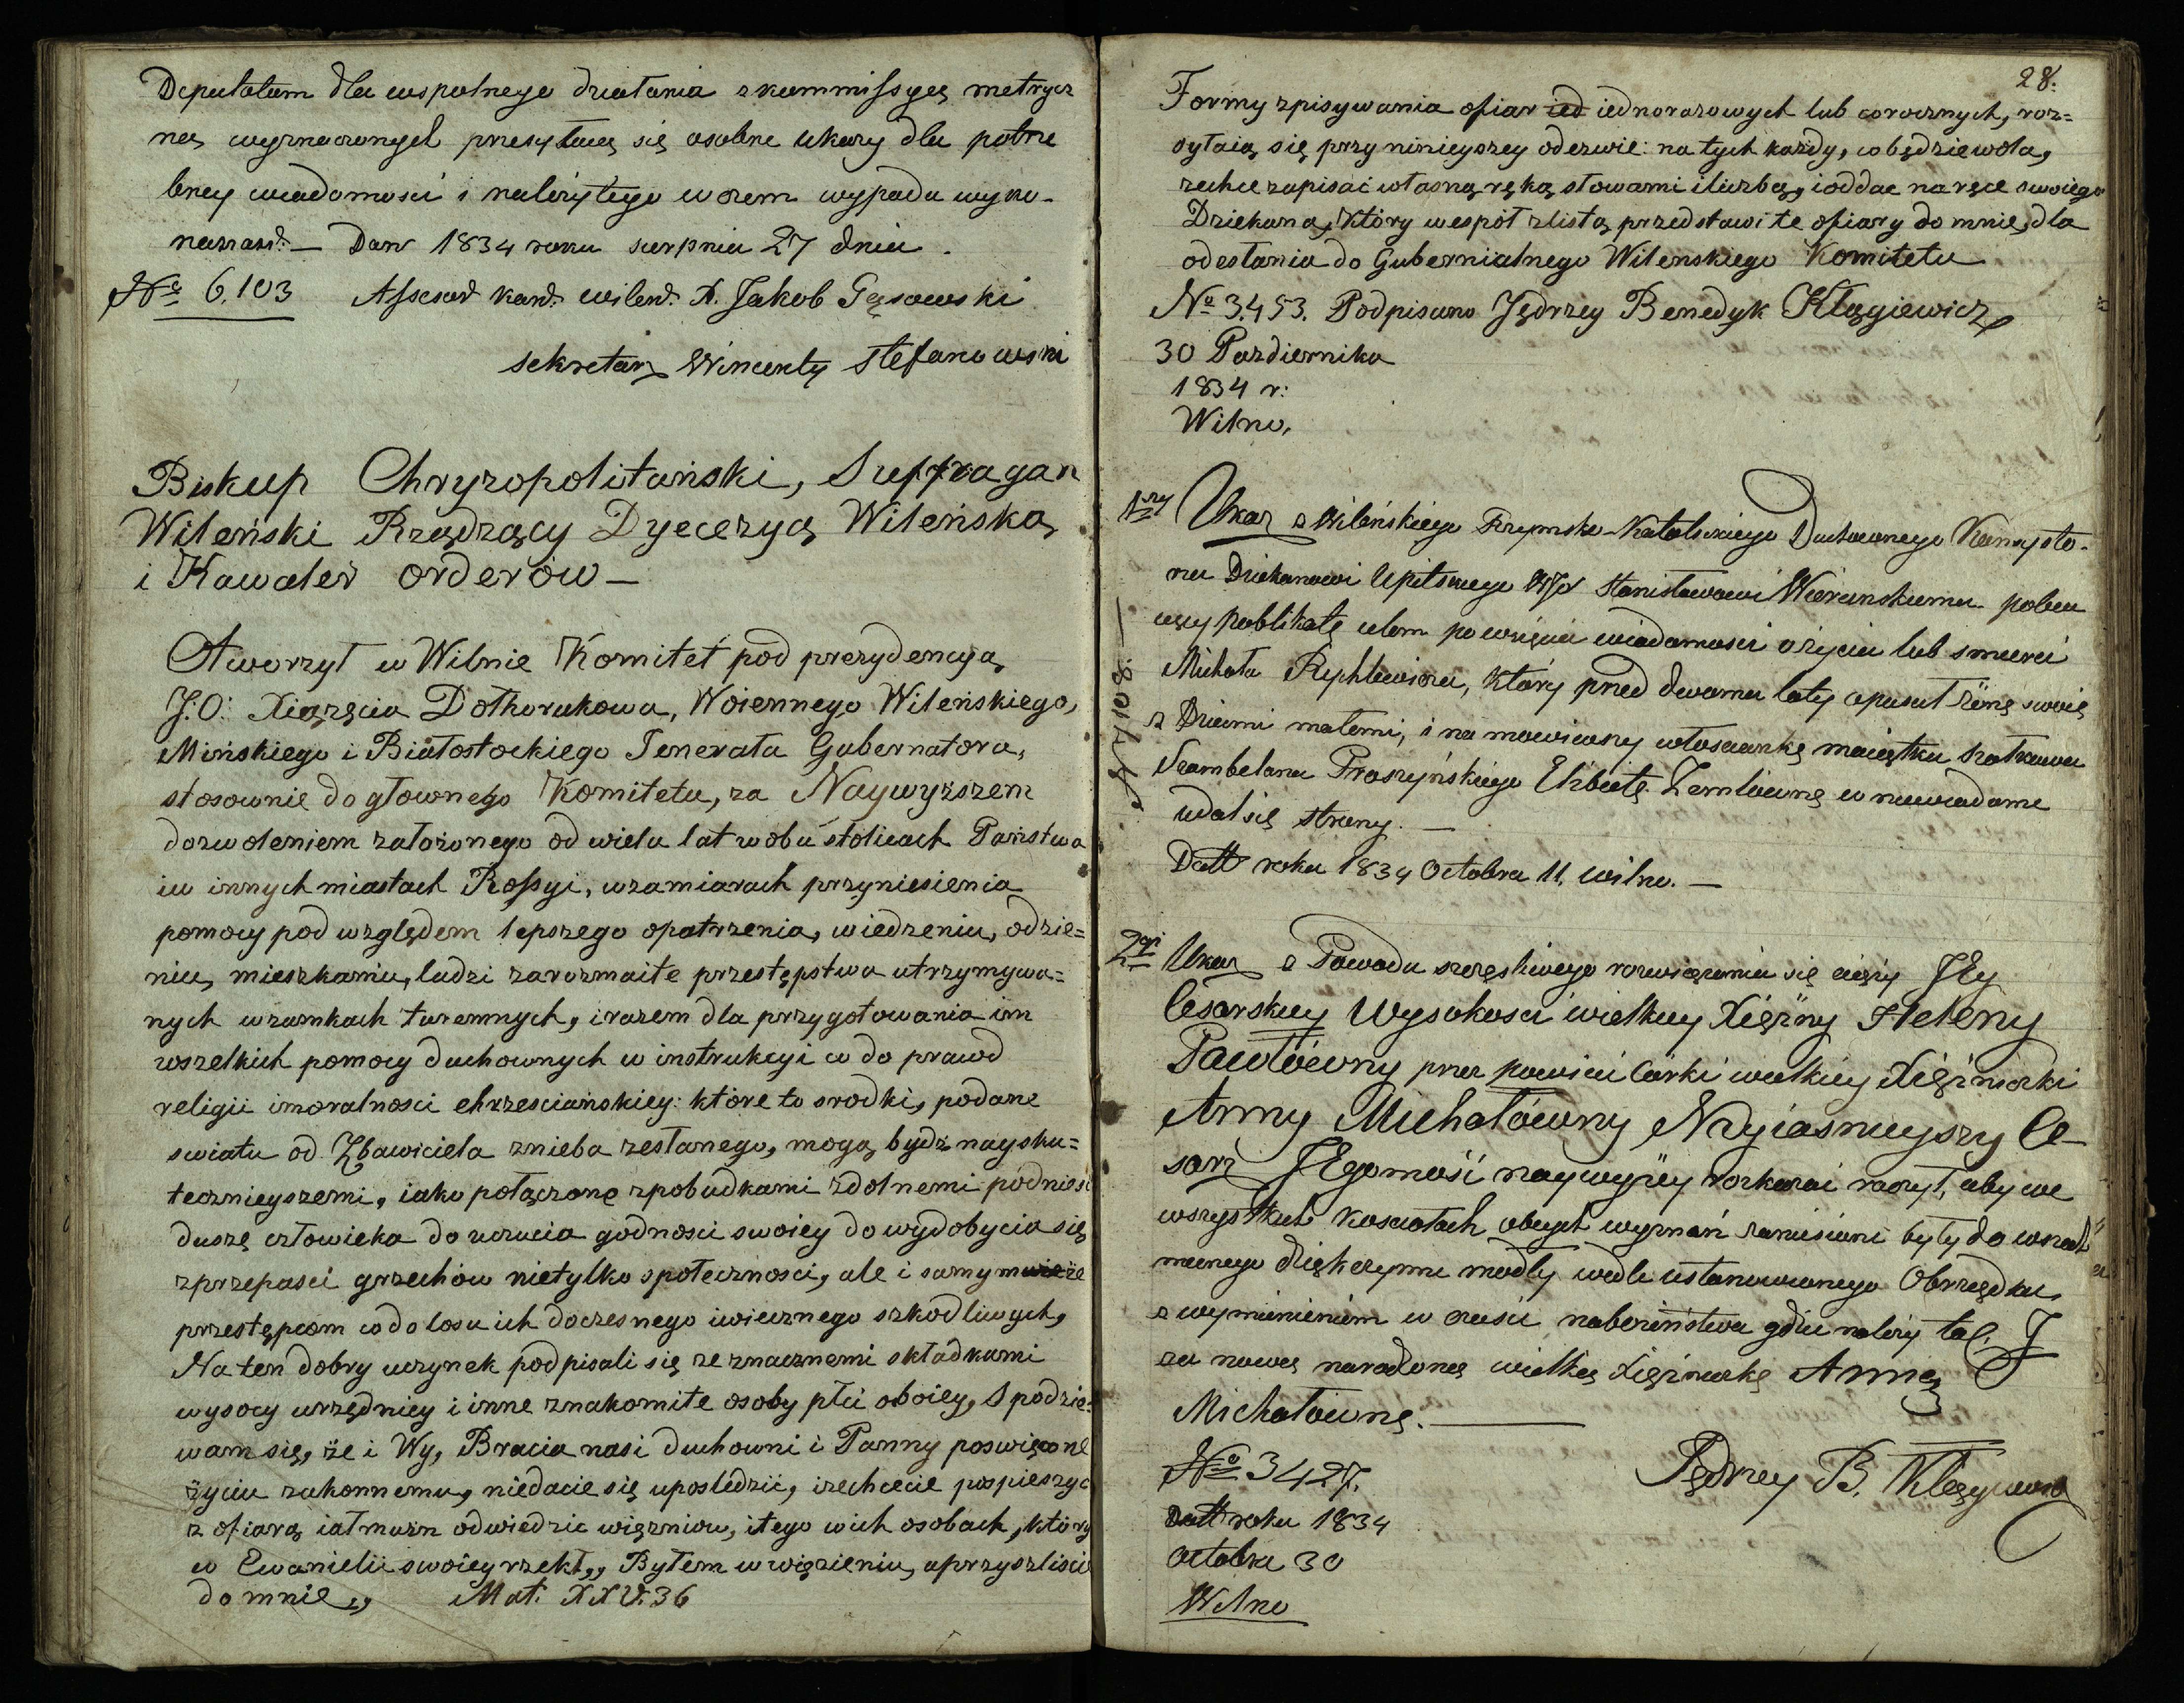 Deputatam dla wspolnego działania z kommissyą metrycz
ną wyznaczonych przesyłaią się osobne ukazy dla potrze
bney wiadomości i należytego w czem wypada wyko-
nania. — Dan 1834 roku sierpnia 27 dnia.
№ 6,103 Assesor kan. wilen. X. Jakob Gąsowski
sekretarz Wincenty Stefanowski
Biskup Chryzopolitański, Suffragan
Wileński Rządzący Dyecezyą Wileńską
i Kawaler orderów —
Otworzył w Wilnie Komitet pod prezydencyą
J: O: Xiążęcia Dołhorukowa, Woiennego Wileńskiego,
Mińskiego i Białostockiego Jenerała Gubernatora,
stosownie do głownego Komitetu, za Naywyższem
dozwoleniem założonego od wielu lat w obu stolicach Państwa
iw innych miastach Rossyi, wzamiarach przyniesienia
pomocy pod względem lepszego opatrzenia, w iedzeniu, odzie=
niu, mieszkaniu, ludzi zarozmaite przestępstwa utrzymywa=
nych wzamkach turemnych, irazem dla przygotowania im
wszelkich pomocy duchownych w instrukcyi co do prawd
religii imoralnosci chrzesciańskiey: które to srodki, podane
swiatu od Zbawiciela znieba zesłanego, mogą bydz naysku=
tecznieyszemi, iako połączone zpobudkami zdolnemi podniesć
duszę człowieka do uczucia godnosci swoiey do wydobycia się
zprzepasci grzechów nietylko społecznosci, ale i samymże
przestępcom co do losu ich doczesnego iwiecznego szkodliwych,
Na ten dobry uczynek podpisali się ze znacznemi składkami
wysocy urzędnicy i inne znakomite osoby płci oboiey, Spodzie=
wam się, że i Wy, Bracia nasi duchowni i Panny poswięcone
życiu zakonnemu, niedacie się uposledzić, izechcecie pospieszyć
z ofiarą iałmużn odwiedzić więzniow, itego wich osobach, który
w Ewanielii swoiey rzekł,, Byłem w więzieniu, aprzyszliscie
do mnie,, Mat. XXV. 36
28.
Formy zpisywania ofiar ied iednorazowych lub corocznych, roz=
syłaią się przy ninieyszey odezwie: na tych każdy, co będzie wola,
zechce zapisać własną ręką słowami iliczbą, ioddać na ręce swoiego
Dziekana, który wespół zlistą przedstawi te ofiary do mnie, dla
odesłania do Gubernialnego Wilenskiego Komitetu
№ 3,453. Podpisano Jędrzey Benedyk Kłągiewicz
30 Pazdiernika
1834 r:
Wilno,
1szy Ukaz z Wileńskiego Rzymsko-Katolickiego Duchownego Konsysto-
rza Dziekanowi Upitskiego Stanisławowi poleca
iący publikatę celem powzięcia wiadomosci ożyciu lub smierci
Michała Rychlewicza, który przed dwoma laty opuscił żonę swoię
z Dziećmi małemi, i na mowiwszy włoscankę maiątku Szatkowa
Szambelana Proszyńskiego Elżbietę w niewiadome
udał się strony. —
Datt roku 1834 Octobra 11. Wilno. —
№ 4,108. —
2gi Ukaz z Powodu szczęśliwego rozwiązania się ciąży JEy
Cesarskiey Wysokości wielkiey Xiężny Heleny
Pawłówny przez powicie Córki wielkiey Xiężniczki
Anny Michałówny Nayiasnieyszy Ce-
sarz JEgomość naywyżey rozkazać raczył, aby we
wszystkich kosciołach obcych wyznań zaniesione były do wszech
mocnego dziękczynne modły wedle ustanowionego Obrządku,
z wymienieniem w czasie nabożeństwa gdzie należy tak. J
za nowo narodzoną wielką xiężniczkę Annę
Michałównę. —
№ 3427. Jędrzey B. Kłągiewicz
Datt roku 1834
Octobra 30
Wilno